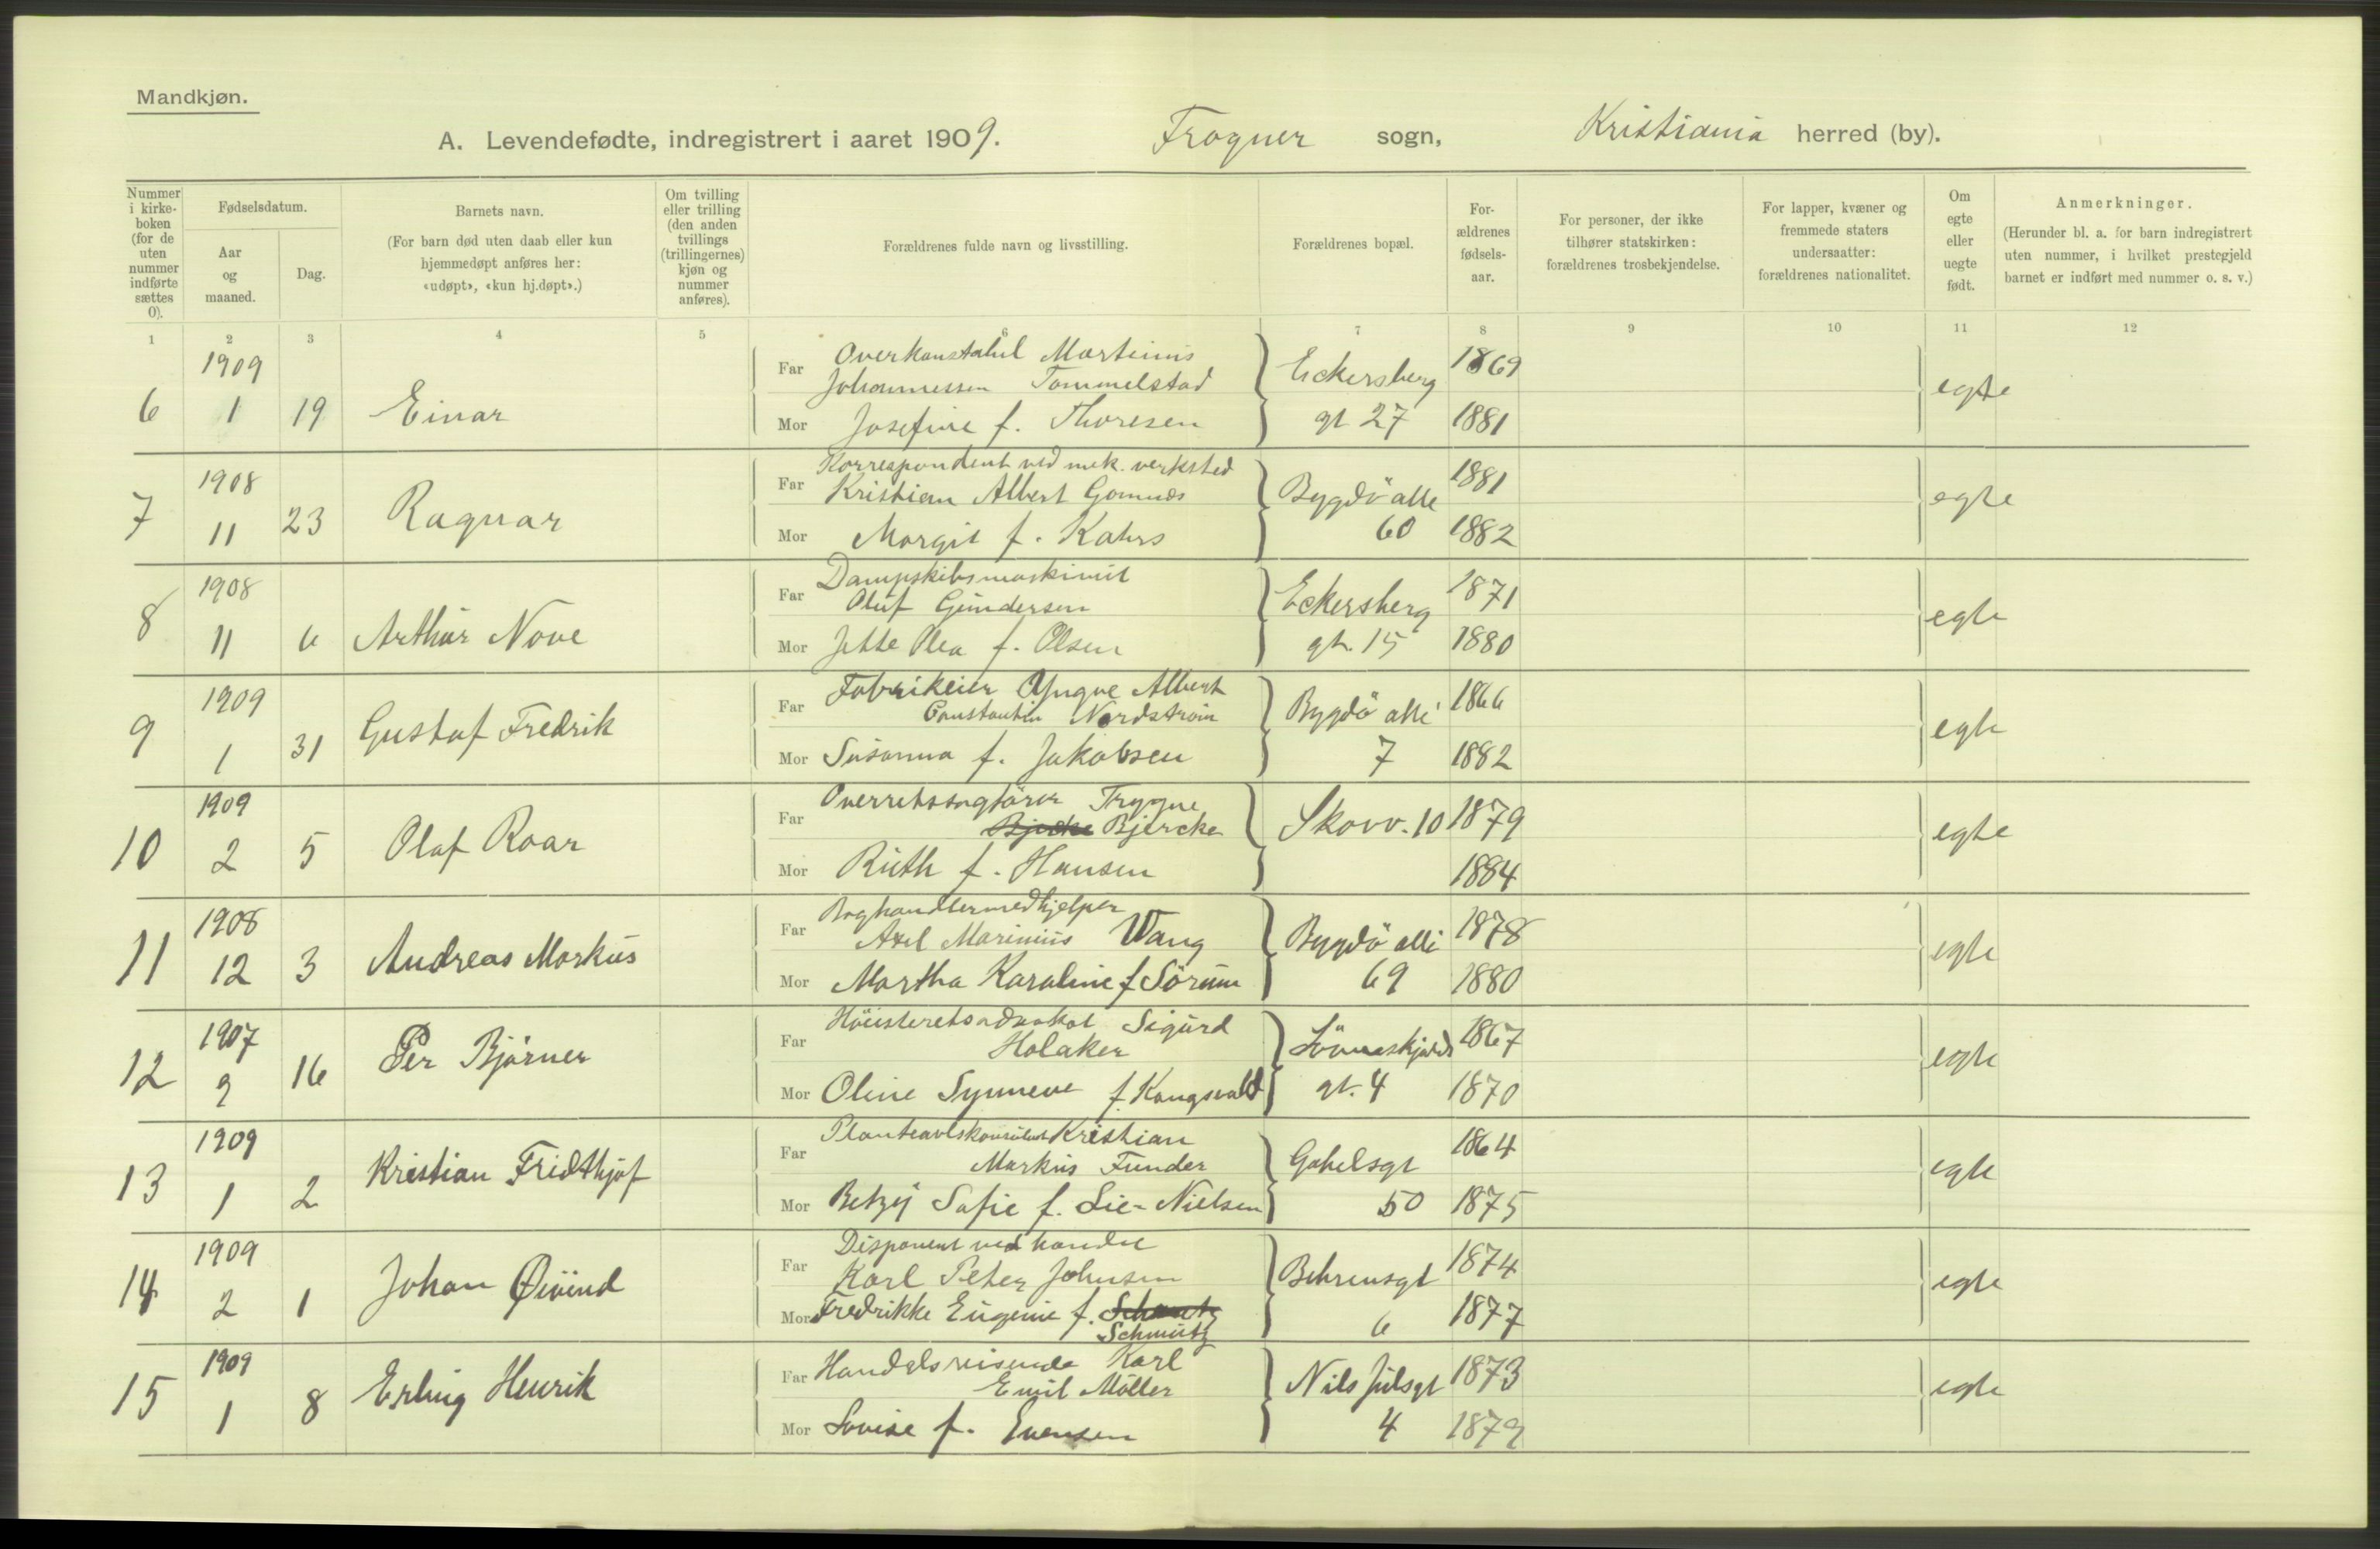 Mandkjøn.
A. Levendefødte, indregistrert i aaret 1909. Frogner sogn, Kristiania herred (by).
Nummer i kirke-boken (for de uten nummer indførte sættes 0).
Fødselsdatum.
Aar og maaned.
Dag.
Barnets navn.
(For barn død uten daab eller kun hjemmedøpt anføres her: «udøpt», «kun hj.døpt».)
Om tvilling eller trilling (den anden tvillings (trillingernes) kjøn og nummer anføres).
Forældrenes fulde navn og livsstilling.
Forældrenes bopæl.
For-ældrenes fødsels-aar.
For personer, der ikke tilhører statskirken: forældrenes trosbekjendelse.
For lapper, kvæner og fremmede staters undersaatter: forældrenes nationalitet.
Om egte eller uegte født.
Anmerkninger.
(Herunder bl. a. for barn indregistrert uten nummer, i hvilket prestegjeld barnet er indført med nummer o. s. v.)
1 2 3 4 5 6 7 8 9 10 11 12
1909 Far Overkonstabel Martinius
Johannessen Tommelstad Eckersberg 1869 egte
6 1 19 Einar
Mor Josefine f. Thoresen gt 27 1881
1908 Far Korrespondent ved mek. verksted
Kristian Albert Bygdö alle 1881 egte
7 11 23 Ragnar
Mor Margit f. Kahrs 60 1882
1908 Far Dampskibsmaskinist
Oluf Gundersen Eckersberg 1871 egte
8 11 6 Arthur Nove
Mor Jette Olea f. Olsen gt. 15 1880
1909 Far Fabrikeier Yngve Albert
Constantin Nordström Bygdö alle 1866 egte
9 1 31 Gustaf Fredrik
Mor Susanna f. Jakobsen 7 1882
1909 Far Overretssagförer Trygve
Bjercke Skovv. 10 1879 egte
10 2 5 Olaf Roar
Mor Ruth f. Hansen 1884
1908 Far Boghandlermedhjelper
Axel Marinius Wang Bygdö alle 1878 egte
11 12 3 Andreas Markus
Mor Martha Karoline f Sörum 69 1880
1907 Far Höiesteretsadvokat Sigurd
Holaker 1867 egte
12 9 16 Per Bjørner
Mor Oline Synneve f Kongsvold gt. 4 1870
1909 Far Planteavlskonsulent Kristian
Markus Funder Gabelsgt 1864 egte
13 1 2 Kristian Fridthjof
Mor Betzy Sofie f. Lie-Nielsen 50 1875
1909 Far Disponent ved handel
Karl Peter Johnsen Behrensgt 1874 egte
14 2 1 Johan Øivind
Mor Fredrikke Eugenie f. Schmutz 6 1877
1909 Far Handelsreisende Karl
Emil Möller Nils Julsgt 1873 egte
15 1 8 Erling Henrik
Mor Lovise f. Evensen 4 1879